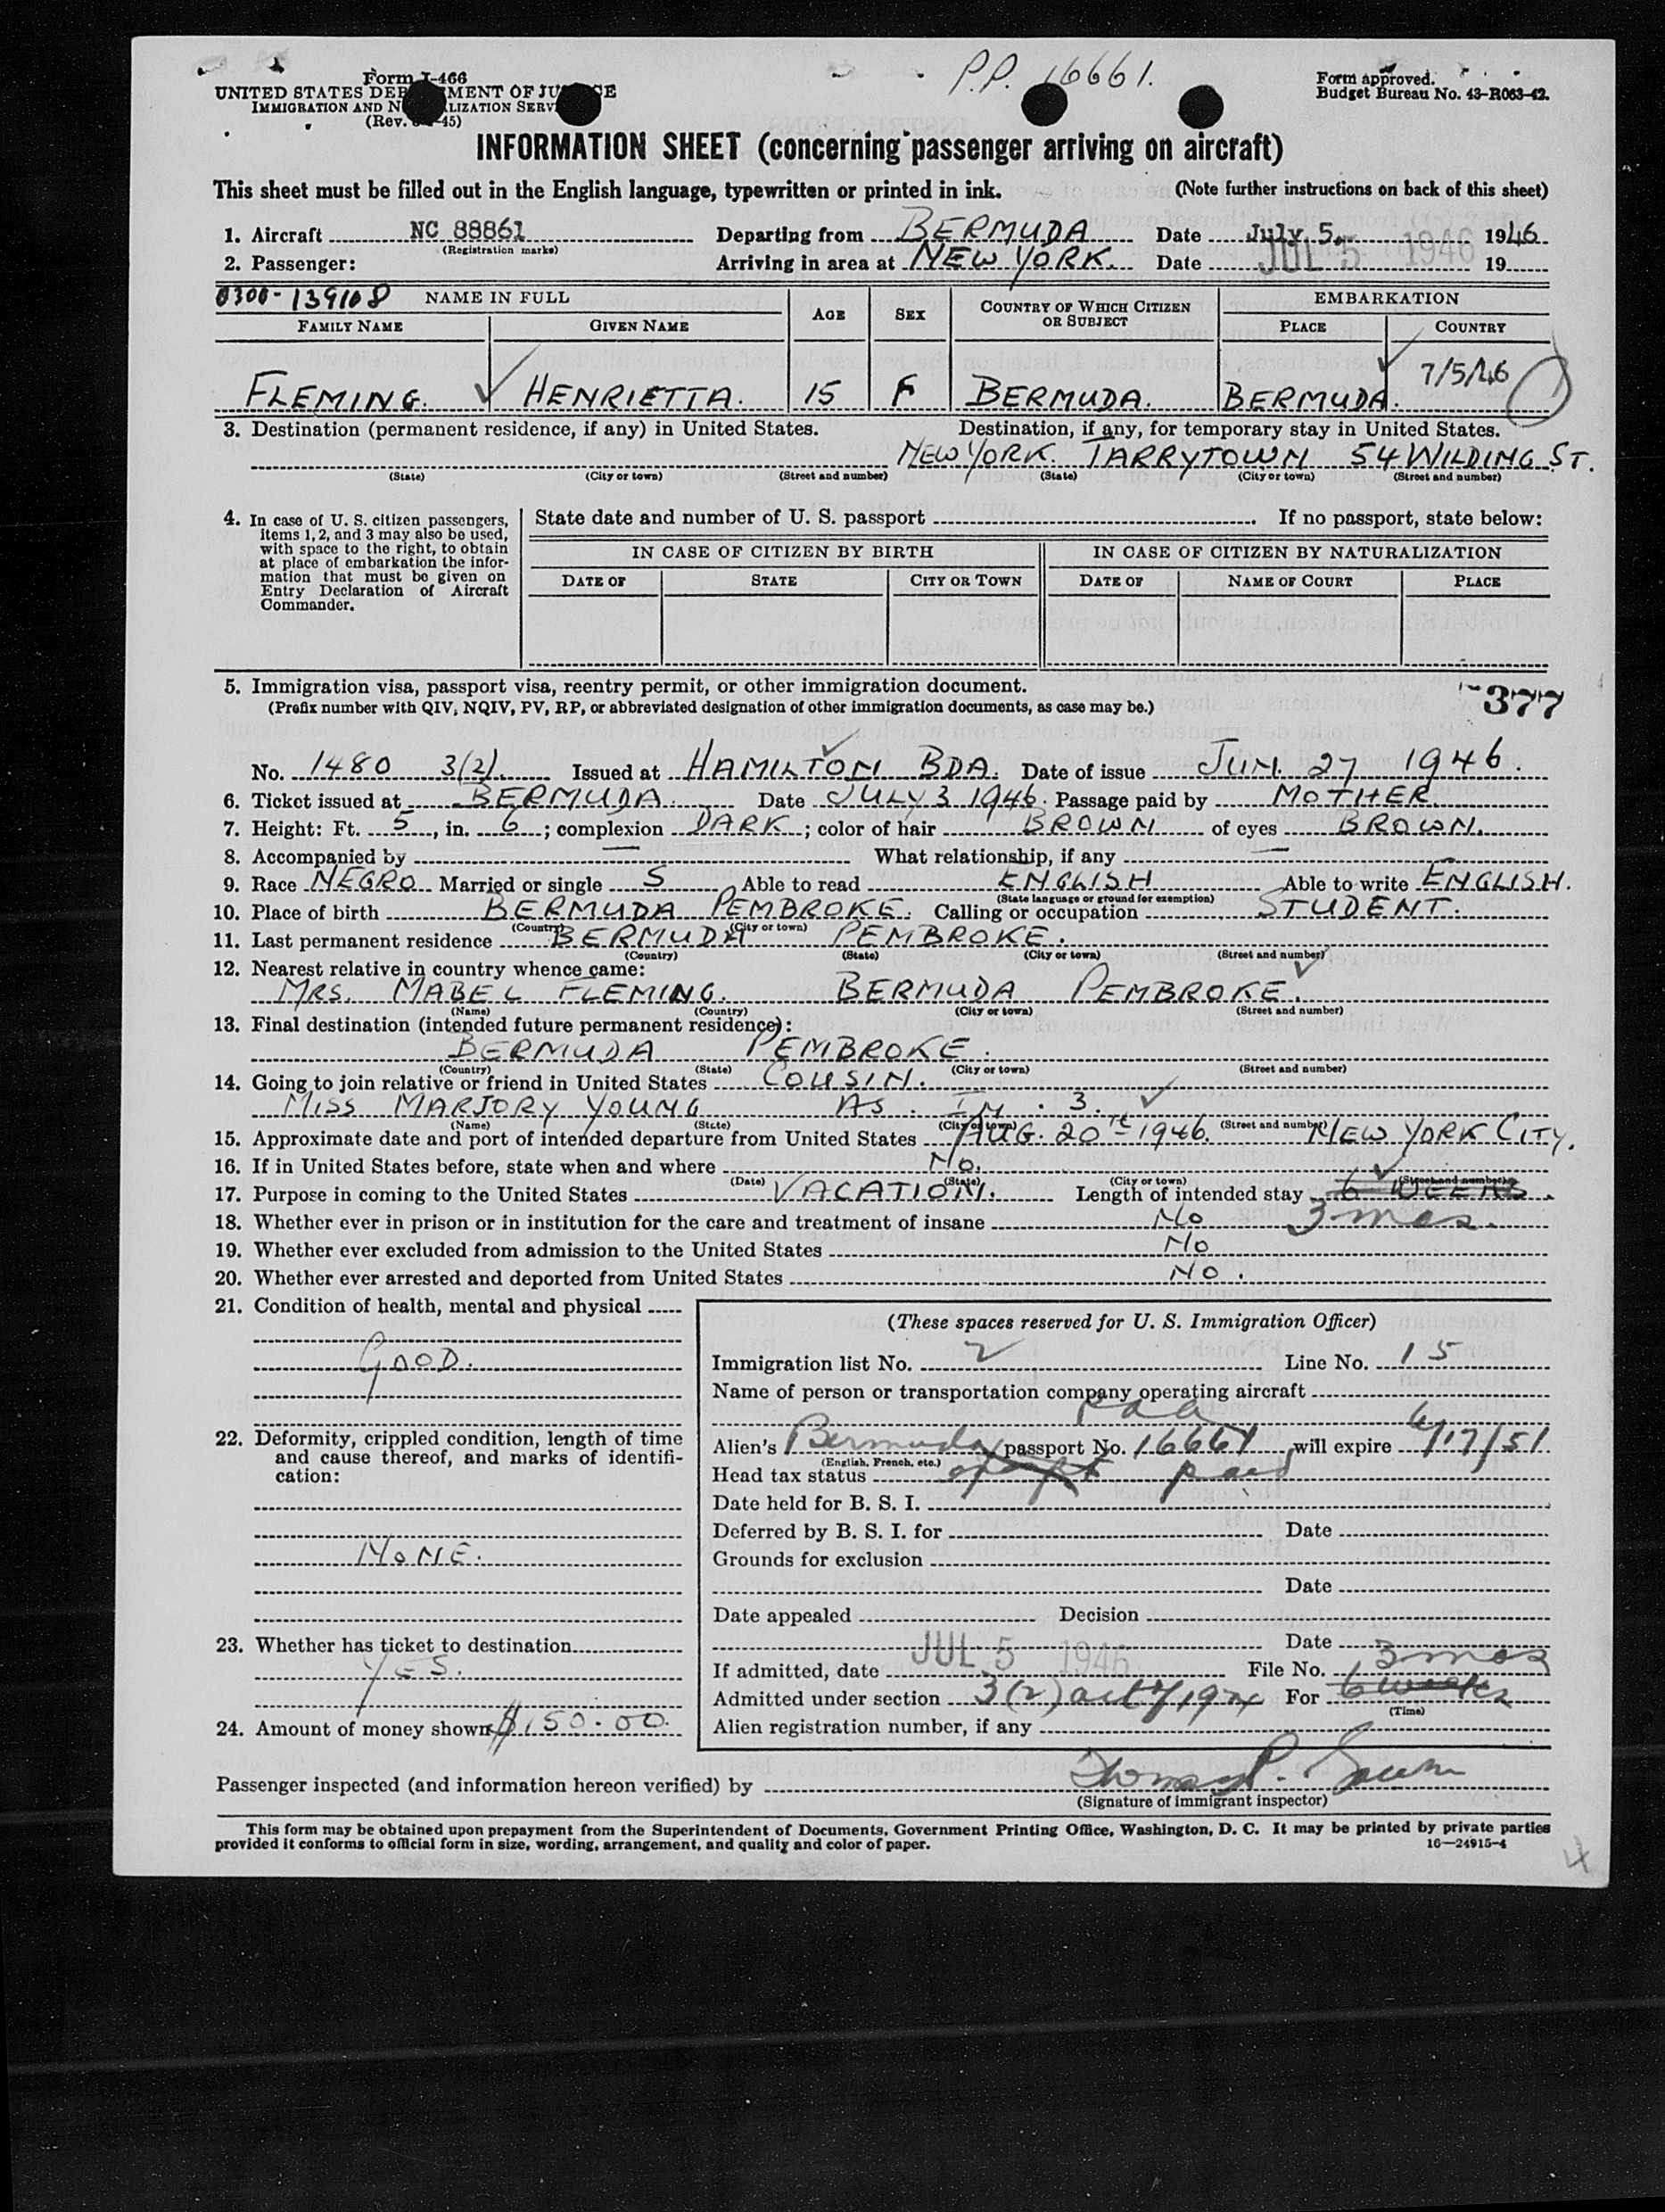 P.P. 16661.
Form I-466
UNITED STATES DEP MENT OF JU CE
IMMIGRATION AND N LIZATION SERV
(Rev. 45)
Form approved.
Budget Bureau No. 43-R063-42.
INFORMATION SHEET (concerning passenger arriving on aircraft)
This sheet must be filled out in the English language, typewritten or printed in ink. (Note further instructions on back of this sheet)
1. Aircraft NC 88861 Departing from BERMUDA Date July 5, 1946
(Registration marks)
2. Passenger: Arriving in area at NEW YORK. Date JUL 5 1946 19
0300-139108 NAME IN FULL AGE SEX COUNTRY OF WHICH CITIZEN OR SUBJECT EMBARKATION
FAMILY NAME GIVEN NAME PLACE COUNTRY
7/5/46
FLEMING. HENRIETTA. 15 F BERMUDA. BERMUDA.
3. Destination (permanent residence, if any) in United States. Destination, if any, for temporary stay in United States.
NEW YORK. TARRYTOWN 54 WILDING ST.
(State) (City or town) (Street and number) (State) (City or town) (Street and number)
4. In case of U. S. citizen passengers, items 1, 2, and 3 may also be used, with space to the right, to obtain at place of embarkation the information that must be given on Entry Declaration of Aircraft Commander.
State date and number of U. S. passport . If no passport, state below:
IN CASE OF CITIZEN BY BIRTH IN CASE OF CITIZEN BY NATURALIZATION
DATE OF STATE CITY OR TOWN DATE OF NAME OF COURT PLACE
5. Immigration visa, passport visa, reentry permit, or other immigration document.
377
(Prefix number with QIV, NQIV, PV, RP, or abbreviated designation of other immigration documents, as case may be.)
No. 1480 3(2). Issued at HAMILTON BDA. Date of issue JUN. 27 1946.
6. Ticket issued at BERMUDA. Date JULY 3 1946. Passage paid by MOTHER.
7. Height: Ft. 5, in. 6; complexion DARK; color of hair BROWN of eyes BROWN.
8. Accompanied by — What relationship, if any —
9. Race NEGRO Married or single S Able to read ENGLISH Able to write ENGLISH.
(State language or ground for exemption)
10. Place of birth BERMUDA PEMBROKE. Calling or occupation STUDENT.
(Country) (City or town)
11. Last permanent residence BERMUDA PEMBROKE.
(Country) (State) (City or town) (Street and number)
12. Nearest relative in country whence came:
MRS. MABEL FLEMING. BERMUDA PEMBROKE.
(Name) (Country) (City or town) (Street and number)
13. Final destination (intended future permanent residence):
BERMUDA PEMBROKE.
(Country) (State) (City or town) (Street and number)
14. Going to join relative or friend in United States COUSIN.
MISS MARJORY YOUNG AS. IN. 3.
(Name) (State) (City or town) (Street and number)
15. Approximate date and port of intended departure from United States AUG. 20th 1946. NEW YORK CITY.
16. If in United States before, state when and where No.
(Date) (State) (City or town) (Street and number)
17. Purpose in coming to the United States VACATION. Length of intended stay 6 WEEKS.
18. Whether ever in prison or in institution for the care and treatment of insane No 3 mos.
19. Whether ever excluded from admission to the United States No
20. Whether ever arrested and deported from United States No.
21. Condition of health, mental and physical
GOOD.
22. Deformity, crippled condition, length of time and cause thereof, and marks of identification:
NONE.
23. Whether has ticket to destination
YES.
24. Amount of money shown $150.00.
(These spaces reserved for U. S. Immigration Officer)
Immigration list No. 2 Line No. 15
Name of person or transportation company operating aircraft
P a a
Alien's Bermuda passport No. 16661 will expire 6/17/51
(English, French, etc.)
Head tax status paid
Date held for B. S. I.
Deferred by B. S. I. for Date
Grounds for exclusion
Date
Date appealed Decision
Date
If admitted, date JUL 5 1946 File No. 3 mos
Admitted under section 3(2) act of 1924 For 6 weeks
(Time)
Alien registration number, if any
Passenger inspected (and information hereon verified) by Thomas P.
(Signature of immigrant inspector)
This form may be obtained upon prepayment from the Superintendent of Documents, Government Printing Office, Washington, D. C. It may be printed by private parties
provided it conforms to official form in size, wording, arrangement, and quality and color of paper. 16—24915-4
4